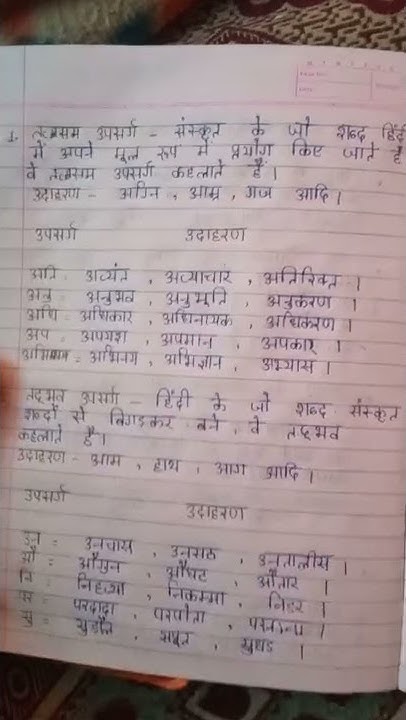 1. तत्सम उपसर्ग - संस्कृत के जो शब्द हिंदी
में अपने मूल रूप में प्रयोग किए जाते हैं
वे तत्सम उपसर्ग कहलाते हैं।
उदाहरण - अग्नि, आम्र, गज आदि।
उपसर्ग उदाहरण
अति - अत्यंत, अत्याचार, अतिरिक्त।
अनु - अनुभव, अनुभूति, अनुकरण।
अधि - अधिकार, अधिनायक, अधिकरण।
अप - अपयश, अपमान, अपकार।
अभिनय, अभिज्ञान, अभ्यास।
तद्भव उपसर्ग - हिंदी के जो शब्द संस्कृत
शब्दों से बिगड़कर बने, वे तद्भव
कहलाते हैं।
उदाहरण - आम, हाथ, आग आदि।
उपसर्ग उदाहरण
उन = उनचास, उनसठ, उनतालीस।
औ = औगुन, औघट, औतार।
नि = निहत्था, निकम्मा, निडर।
पर = परदादा, परपोता,
सु = सुडौल, सुघड़।